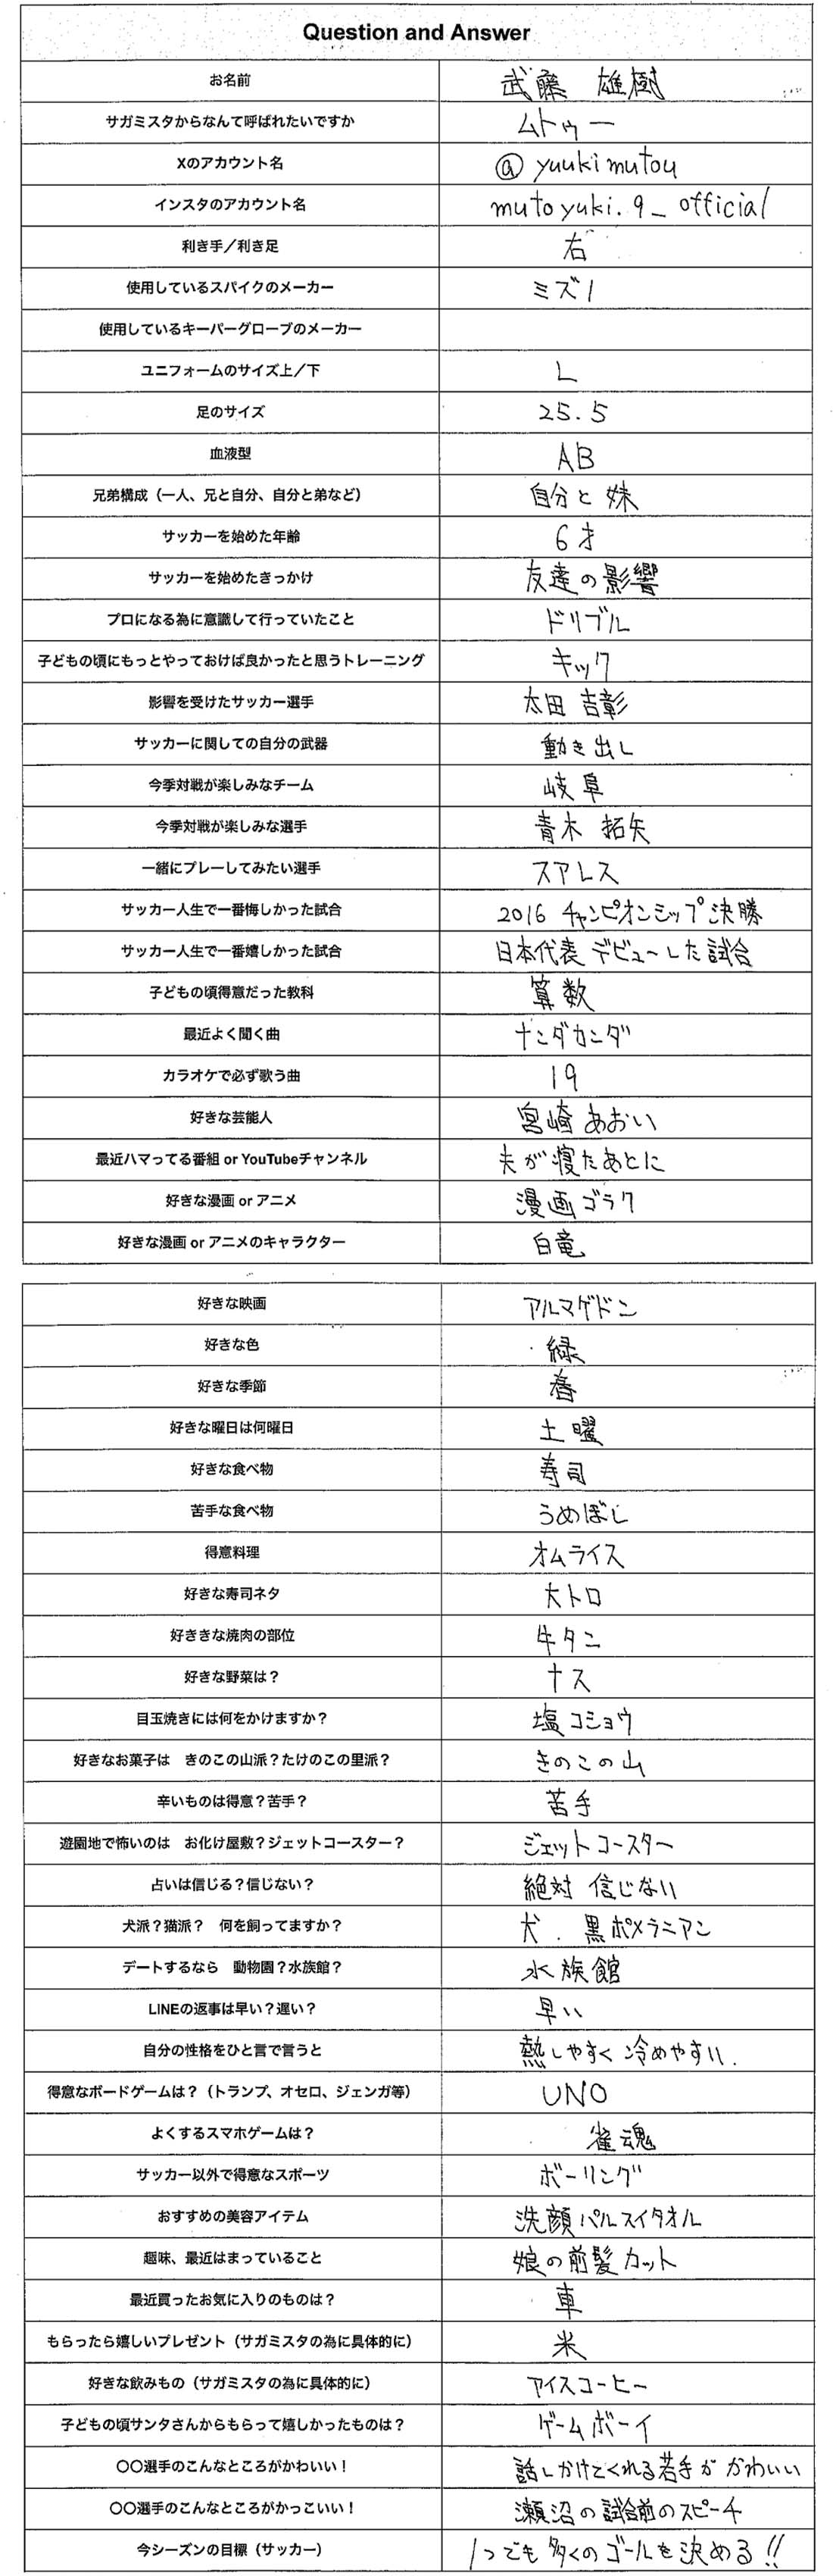 Question and Answer
お名前 武藤 雄樹
サガミスタからなんて呼ばれたいですか ムトゥー
Xのアカウント名 @yuukimutou
インスタのアカウント名 mutoyuki.9_official
利き手／利き足 右
使用しているスパイクのメーカー ミズノ
使用しているキーパーグローブのメーカー
ユニフォームのサイズ上／下 L
足のサイズ 25.5
血液型 AB
兄弟構成（一人、兄と自分、自分と弟など） 自分と妹
サッカーを始めた年齢 6才
サッカーを始めたきっかけ 友達の影響
プロになる為に意識して行っていたこと ドリブル
子どもの頃にもっとやっておけば良かったと思うトレーニング キック
影響を受けたサッカー選手 太田 吉彰
サッカーに関しての自分の武器 動き出し
今季対戦が楽しみなチーム 岐阜
今季対戦が楽しみな選手 青木 拓矢
一緒にプレーしてみたい選手 スアレス
サッカー人生で一番悔しかった試合 2016 チャンピオンシップ決勝
サッカー人生で一番嬉しかった試合 日本代表デビューした試合
子どもの頃得意だった教科 算数
最近よく聞く曲 ナンダカンダ
カラオケで必ず歌う曲 19
好きな芸能人 宮崎 あおい
最近ハマってる番組 or YouTubeチャンネル 夫が寝たあとに
好きな漫画 or アニメ 漫画ゴラク
好きな漫画 or アニメのキャラクター 白竜
好きな映画 アルマゲドン
好きな色 緑
好きな季節 春
好きな曜日は何曜日 土曜
好きな食べ物 寿司
苦手な食べ物 うめぼし
得意料理 オムライス
好きな寿司ネタ 大トロ
好ききな焼肉の部位 牛タン
好きな野菜は？ ナス
目玉焼きには何をかけますか？ 塩コショウ
好きなお菓子は　きのこの山派？たけのこの里派？ きのこの山
辛いものは得意？苦手？ 苦手
遊園地で怖いのは　お化け屋敷？ジェットコースター？ ジェットコースター
占いは信じる？信じない？ 絶対 信じない
犬派？猫派？　何を飼ってますか？ 犬．黒ポメラニアン
デートするなら　動物園？水族館？ 水族館
LINEの返事は早い？遅い？ 早い
自分の性格をひと言で言うと 熱しやすく冷めやすい．
得意なボードゲームは？（トランプ、オセロ、ジェンガ等） UNO
よくするスマホゲームは？ 雀魂
サッカー以外で得意なスポーツ ボーリング
おすすめの美容アイテム 洗顔パルスイタオル
趣味、最近はまっていること 娘の前髪カット
最近買ったお気に入りのものは？ 車
もらったら嬉しいプレゼント（サガミスタの為に具体的に） 米
好きな飲みもの（サガミスタの為に具体的に） アイスコーヒー
子どもの頃サンタさんからもらって嬉しかったものは？ ゲームボーイ
〇〇選手のこんなところがかわいい！ 話しかけてくれる若手がかわいい
〇〇選手のこんなところがかっこいい！ 瀬沼の試合前のスピーチ
今シーズンの目標（サッカー） 1つでも多くのゴールを決める!!